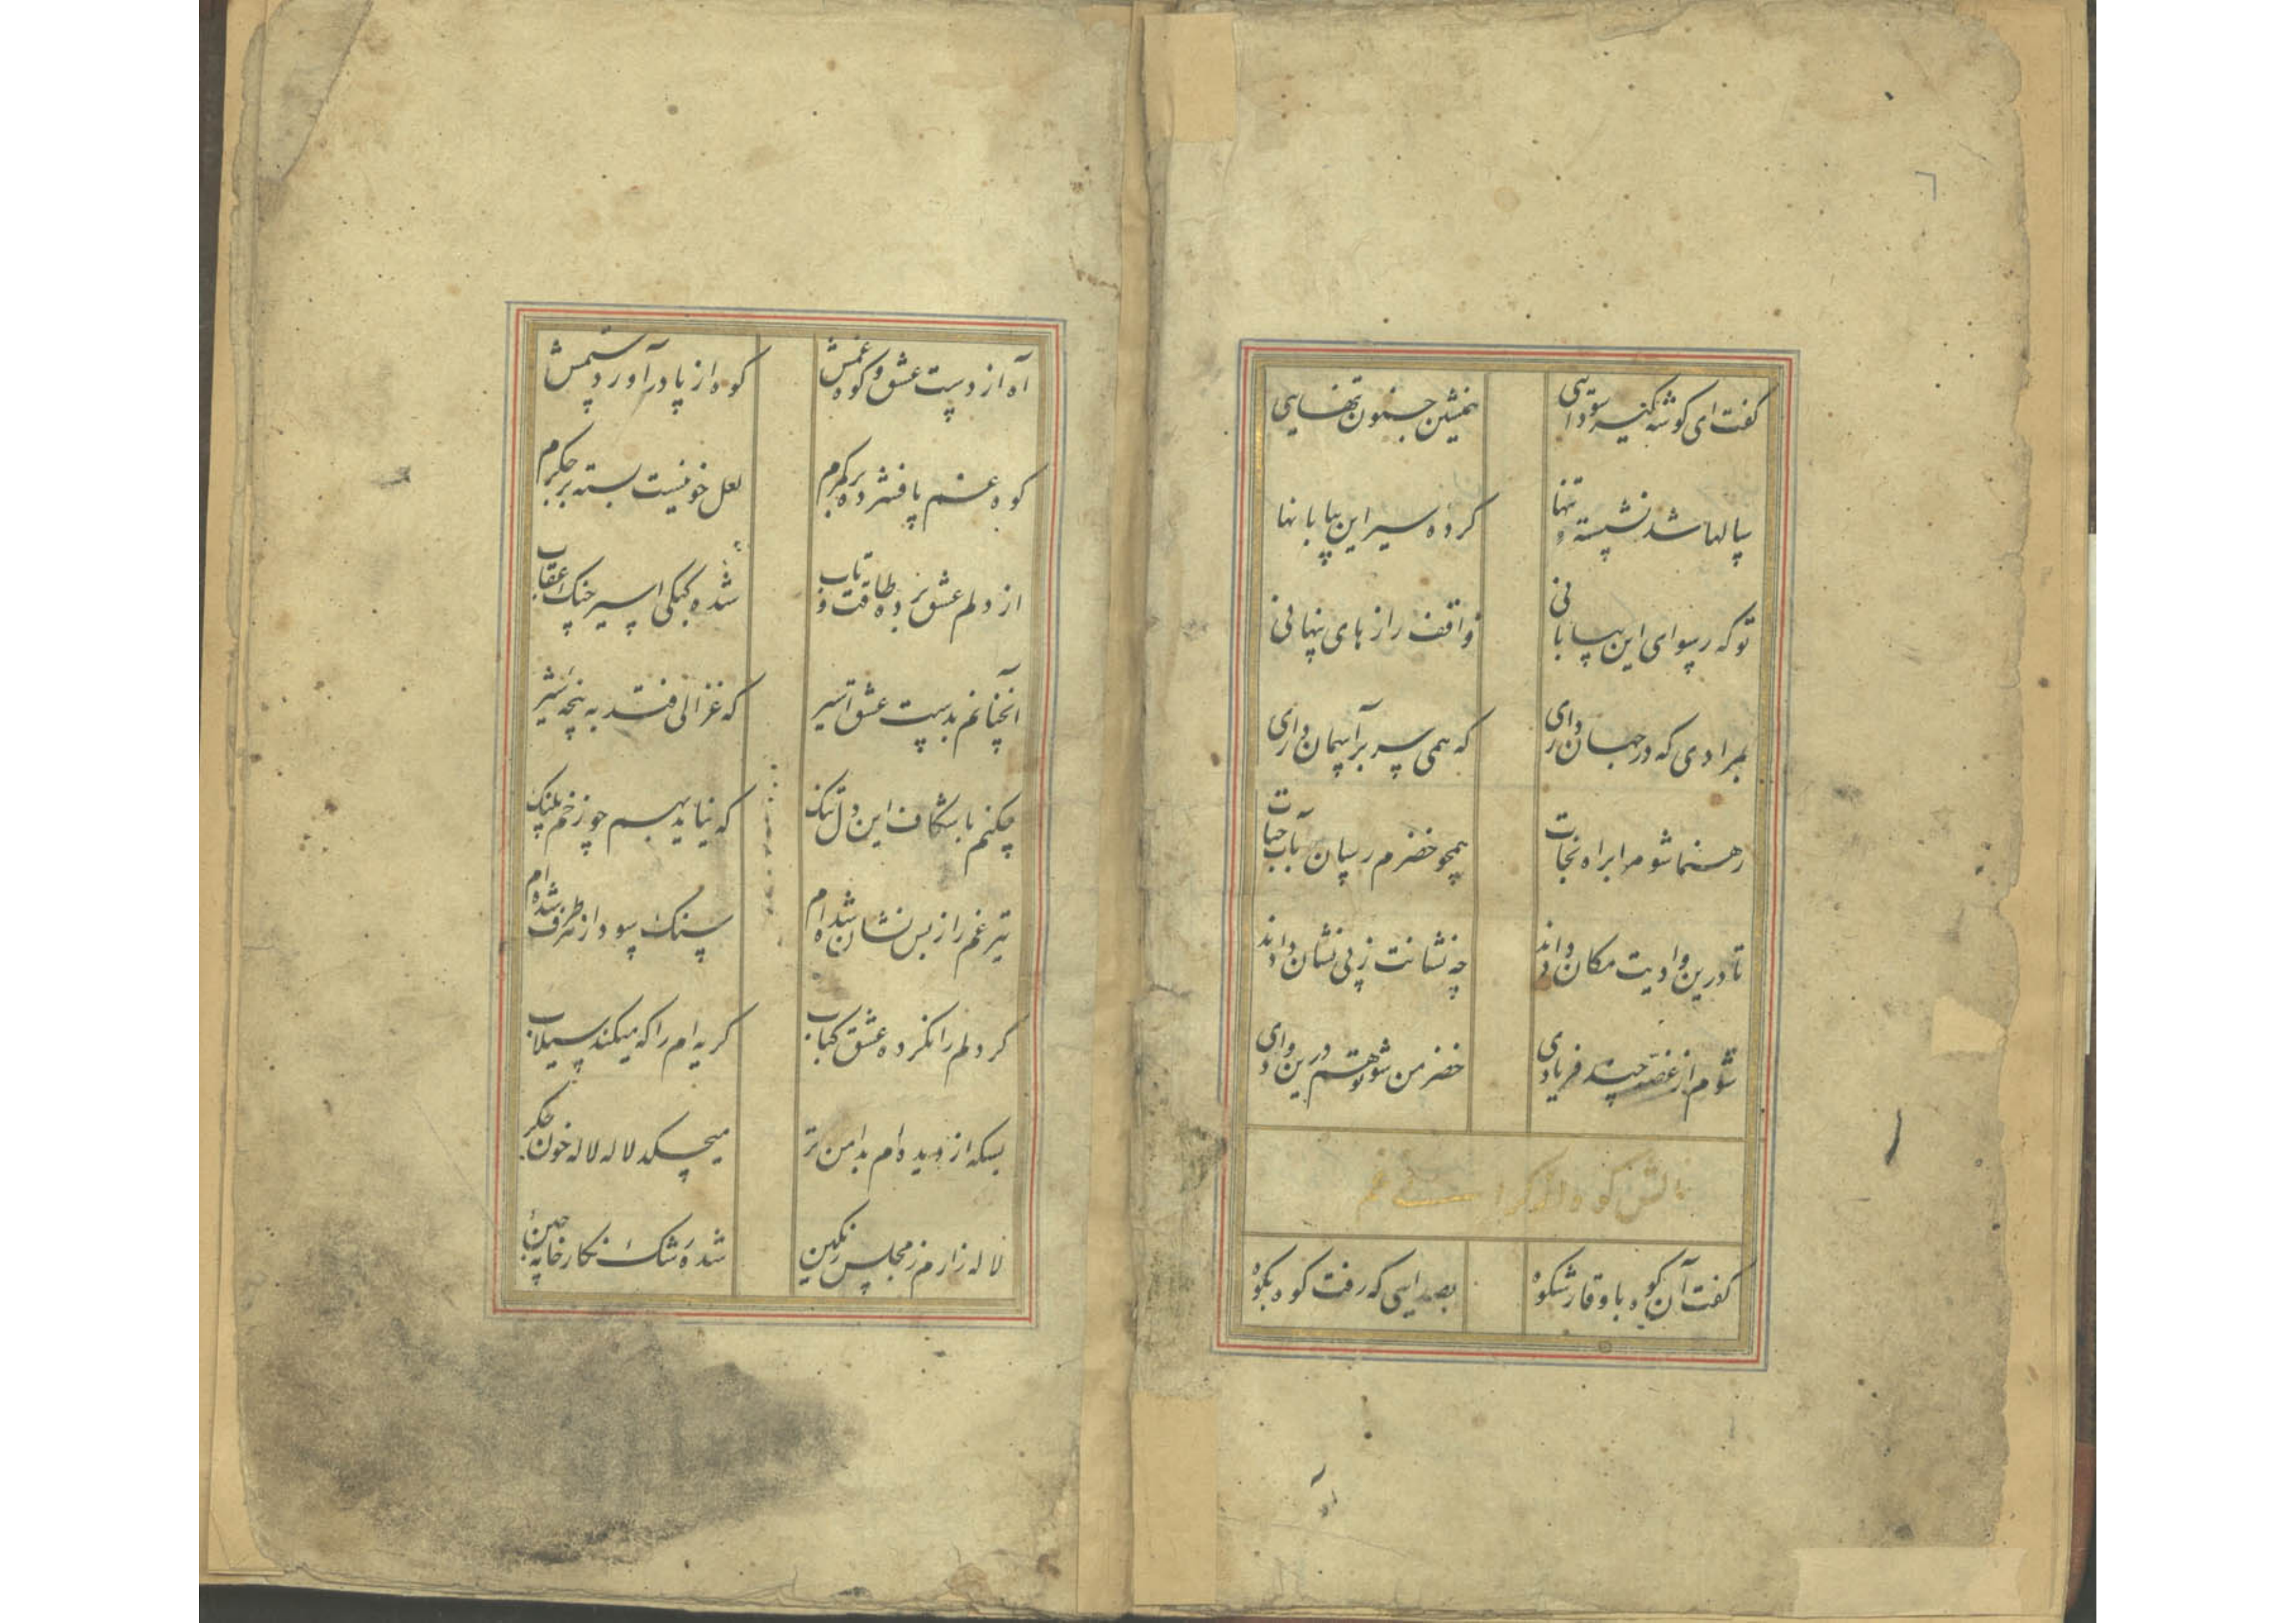 ٦
گفت ای گوشه گیر سودائی همنشین جنون تنهایی
سالها شد نشسته و تنها کرده سیر این بیابانها
تو که رسوای این بیابانی واقف رازهای پنهانی
بمرادی که در جهان داری که همی سر بر آسمان داری
رهنما شو مرا براه نجات همچو خضرم رسان بآب حیات
تا درین وادیت مکان دادند چه نشانت ز بی نشان دادند
شوم از غصه چند فریادی خضر من شو تو هم درین وادی
کوه
گفت آن کوه با وقار شکوه بصدایی که رفت کوه بکوه
آه از دست عشق و کوه غمش کوه از پا در آورد ستمش
کوه غم پا فشرده بر کمرم لعل خونیست بسته بر جگرم
از دلم عشق برده طاقت و تاب شده کبکی اسیر چنگ عقاب
آنچنانم بدست عشق اسیر که غزالی فتد به پنجه شیر
چکنم با شکاف این دل تنگ که نیاید بهم چو زخم پلنگ
تیر غم را ز بس نشان شده ام سنگ سود از طرف شده ام
گر دلم را نکرده عشق کباب گریه ام را که میکند سیلاب
بسکه از دیده ام بدامن تر میچکد لاله لاله خون جگر
لاله زارم ز مجلس رنگین شده رشک نگارخانه چین